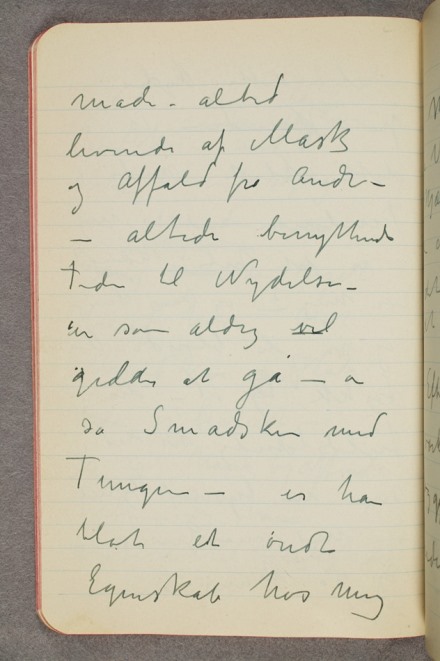 made - altid
levende af Mask
og Affald fra Andre -
- altid benyttende
Tiden til Nydelse -
er som aldrig vil
gidde at gå - o
så Smadsken med
Tungen - er han
blot et ondt
Egenskab hos mig